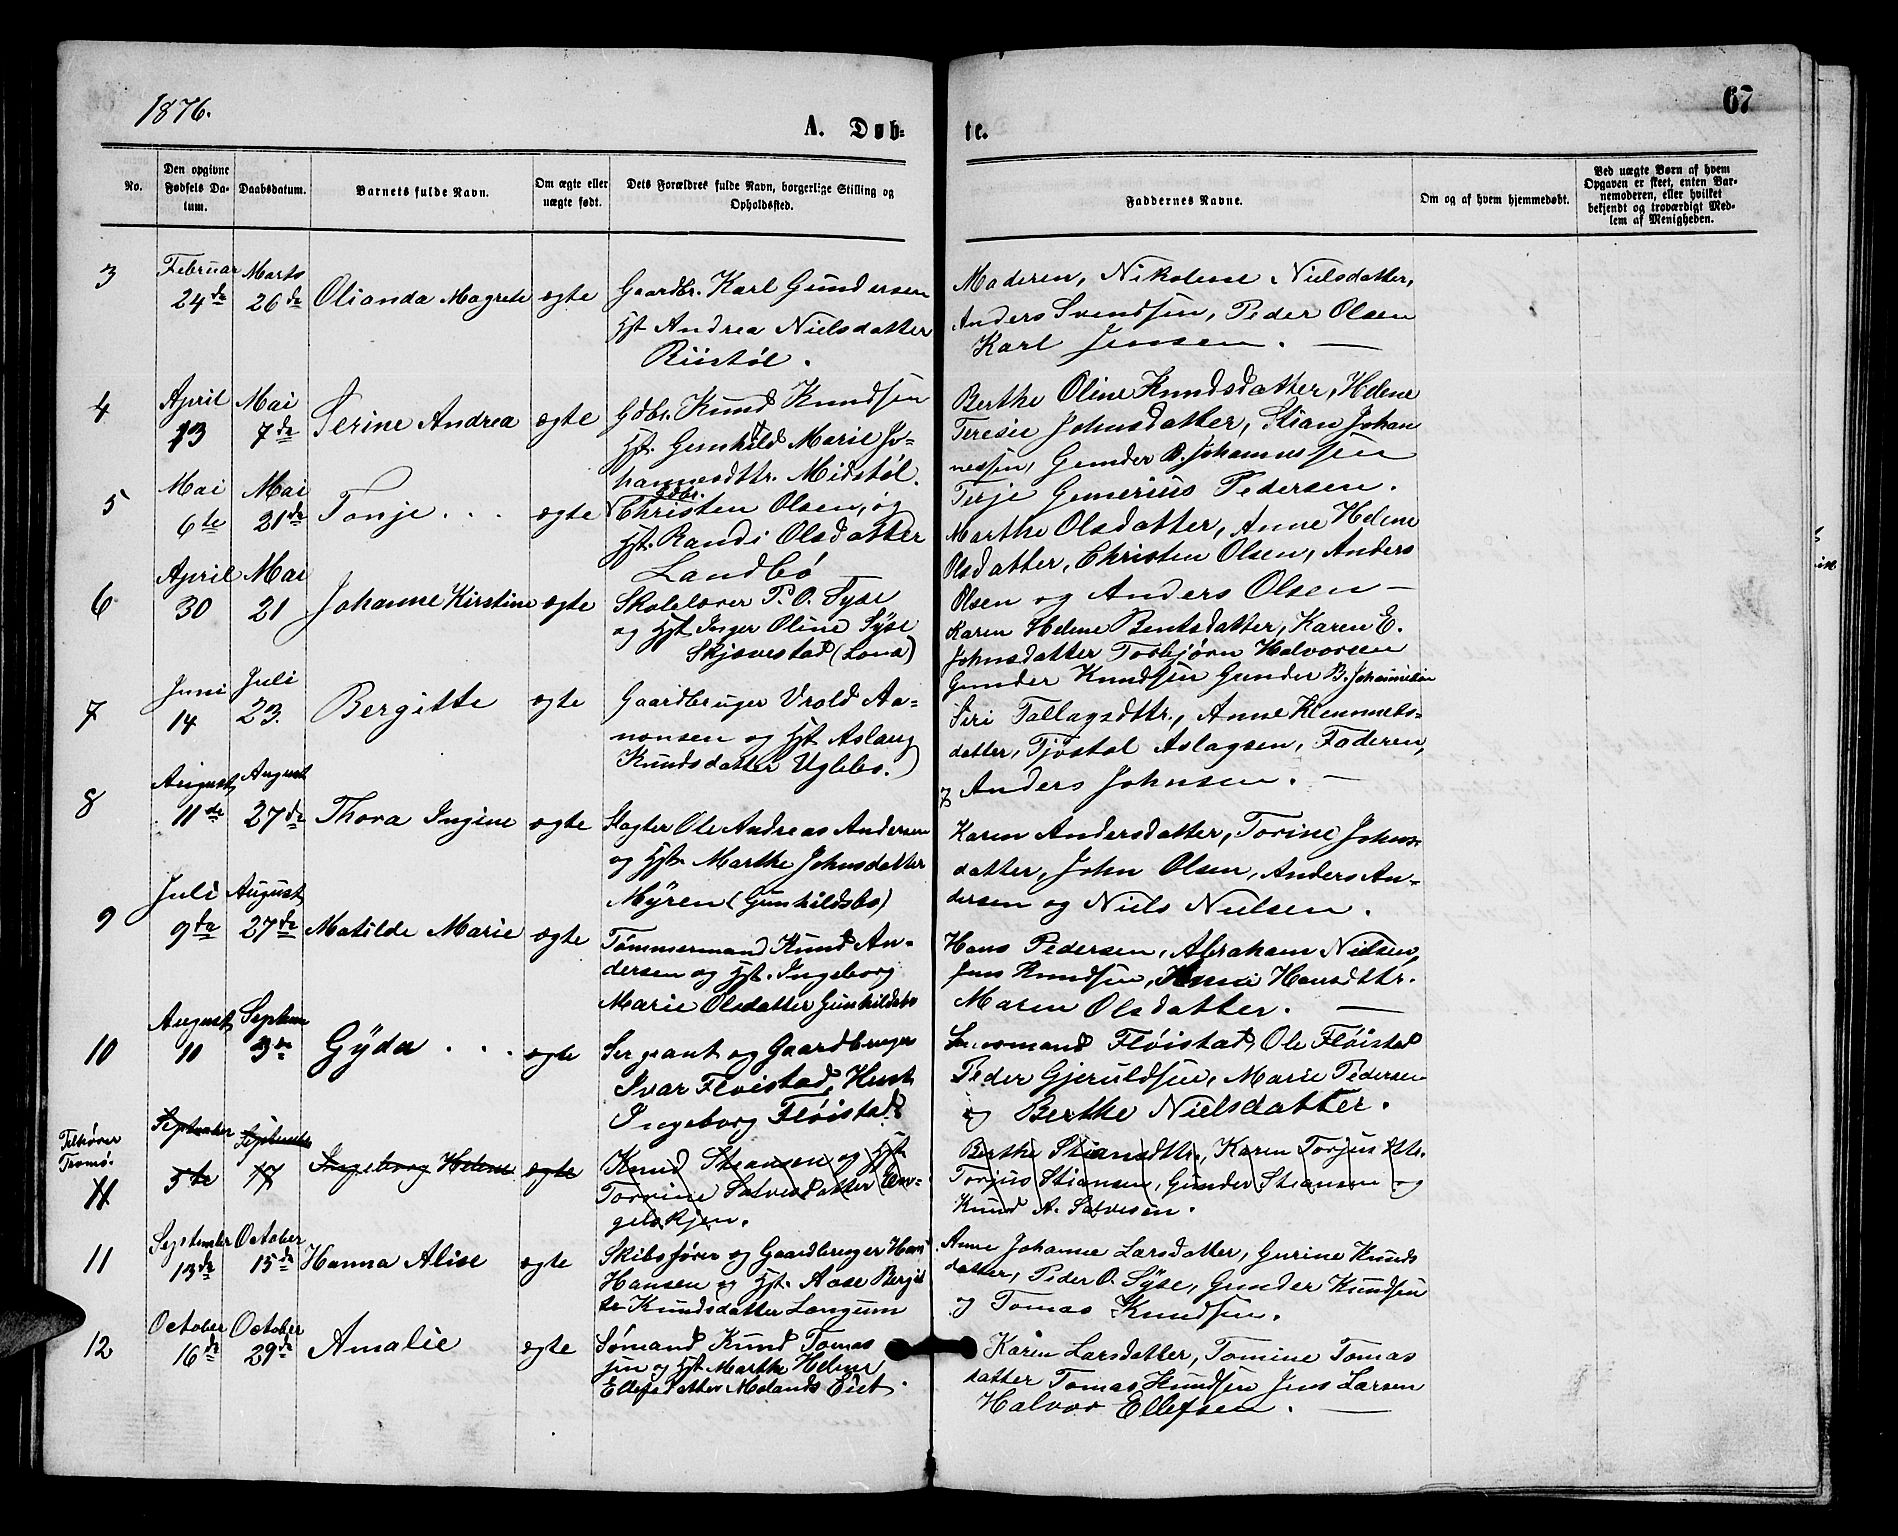 1876.
67
A. Døb-
te.
No.
Den opgivne
Fødsels Da-
tum.
Daabsdatum.
Barnets fulde Navn.
Om ægte eller
uægte født.
Dets Forældres fulde Navn, borgerlige Stilling og
Opholdsted.
Faddernes Navne.
Om og af hvem hjemmedøbt.
Ved uægte Børn af hvem
Opgaven er skeet, enten Bar-
nemoderen, eller hvilket
bekjendt og troværdigt Med-
lem af Menigheden.
3
Februar
24de
Marts
26de
Olianda Magrete
ægte
Gaardbr. Karl Gundersen
Hst Andrea Nielsdatter
Riistøl.
Moderen, Nikolene Nielsdatter,
Anders Svendsen, Peder Olsen
Karl Jensen. —
4
April
13
Mai
7de
Serine Andrea
ægte
Gdbr. Knud Knudsen
Hst. Gunhild Marie Jo-
hannesdttr. Midstøl.
Berthe Oline Knudsdatter, Helene
Teresie Johnsdatter, Stian Johan
nessen, Gunder B. Johannessen
Terje Gunerius Pedersen.
5
Mai
6te
Mai
21de
Tonje . . .
ægte
Gdbr.
Christen Olsen, og
Hst. Randi Olsdatter
Landbö
Marthe Olsdatter, Anne Helene
Olsdatter, Christen Olsen, Anders
Olsen og Anders Olsen —
6
April
30
Mai
21
Johanne Kirstine
ægte
Skolelærer P. O. Syse
og Hst Inger Oline Syse
Skjævestad (Lona)
Karen Helene Bentsdatter, Karen E.
Johnsdatter Torbjørn Halvorsen
Gunder Knudsen Gunder B. Johannesen
7
Juni
14
Juli
23.
Bergitte
ægte
Gaardbruger Vrold Aa-
nonsen og Hst Aslaug
Knudsdatter Uglebo.)
Siri Tallagsdttr., Anne Klemmets-
datter, Tjøstøl Aslagsen, Faderen,
Anders Johnsen. —
8
August
11de
August
27de
Thora Ingine
ægte
Slagter Ole Andreas Andersen
og Hst. Marthe Johnsdatter
Myren (Gunhildsbo)
Karen Andersdatter, Torine Johns-
datter, John Olsen, Anders An-
dersen og Niels Nielsen.
9
Juli
9de
August
27de
Matilde Marie
ægte
Tømmermand Knud An-
dersen og Hst. Ingeborg
Marie Olsdatter Gunhildsbo
Hans Pedersen, Abraham Nielsen,
Jens Knudsen, Hansdttr.
Maren Olsdatter. —
10
August
10
Septem
3de
Gyda . . .
ægte
Sergeant og Gaardbruger
Ivar Fløistad, Hust.
Ingeborg Fløistad
Fløistad, Ole Fløistad
Peder Gjeruldsen, Marie Pedersen
og Berthe Nielsdatter.
Tilhører
Tromø.
11
September
5te
September
17
Ingeborg Helene
ægte
Knud Stiansen og Hst
Torine Salvesdatter En-
gelskjøn.
Berthe Stiansdttr., Karen Torjusdttr.
Torjus Stiansen, Gunder Stiansen og
Knud A. Salvesen.
11
September
13de
October
15de
Hanna Alise
ægte
Skibsfører og Gaardbruger Hans
Hansen og Hst. Aase Bergit
te Knudsdatter Langum
Anne Johanne Larsdatter, Gurine Knuds
datter, Peder O. Syse, Gunder Knudsen
og Tomas Knudsen.
12
October
16de
October
29de
Amalie
ægte
Sømand Knud Tomas
sen og Hst Marthe Helene
Ellefsdatter Molands Eiet.
Karen Larsdatter, Tomine Tomas
datter Tomas Knudsen Jens Larsen
Halvor Ellefsen. —